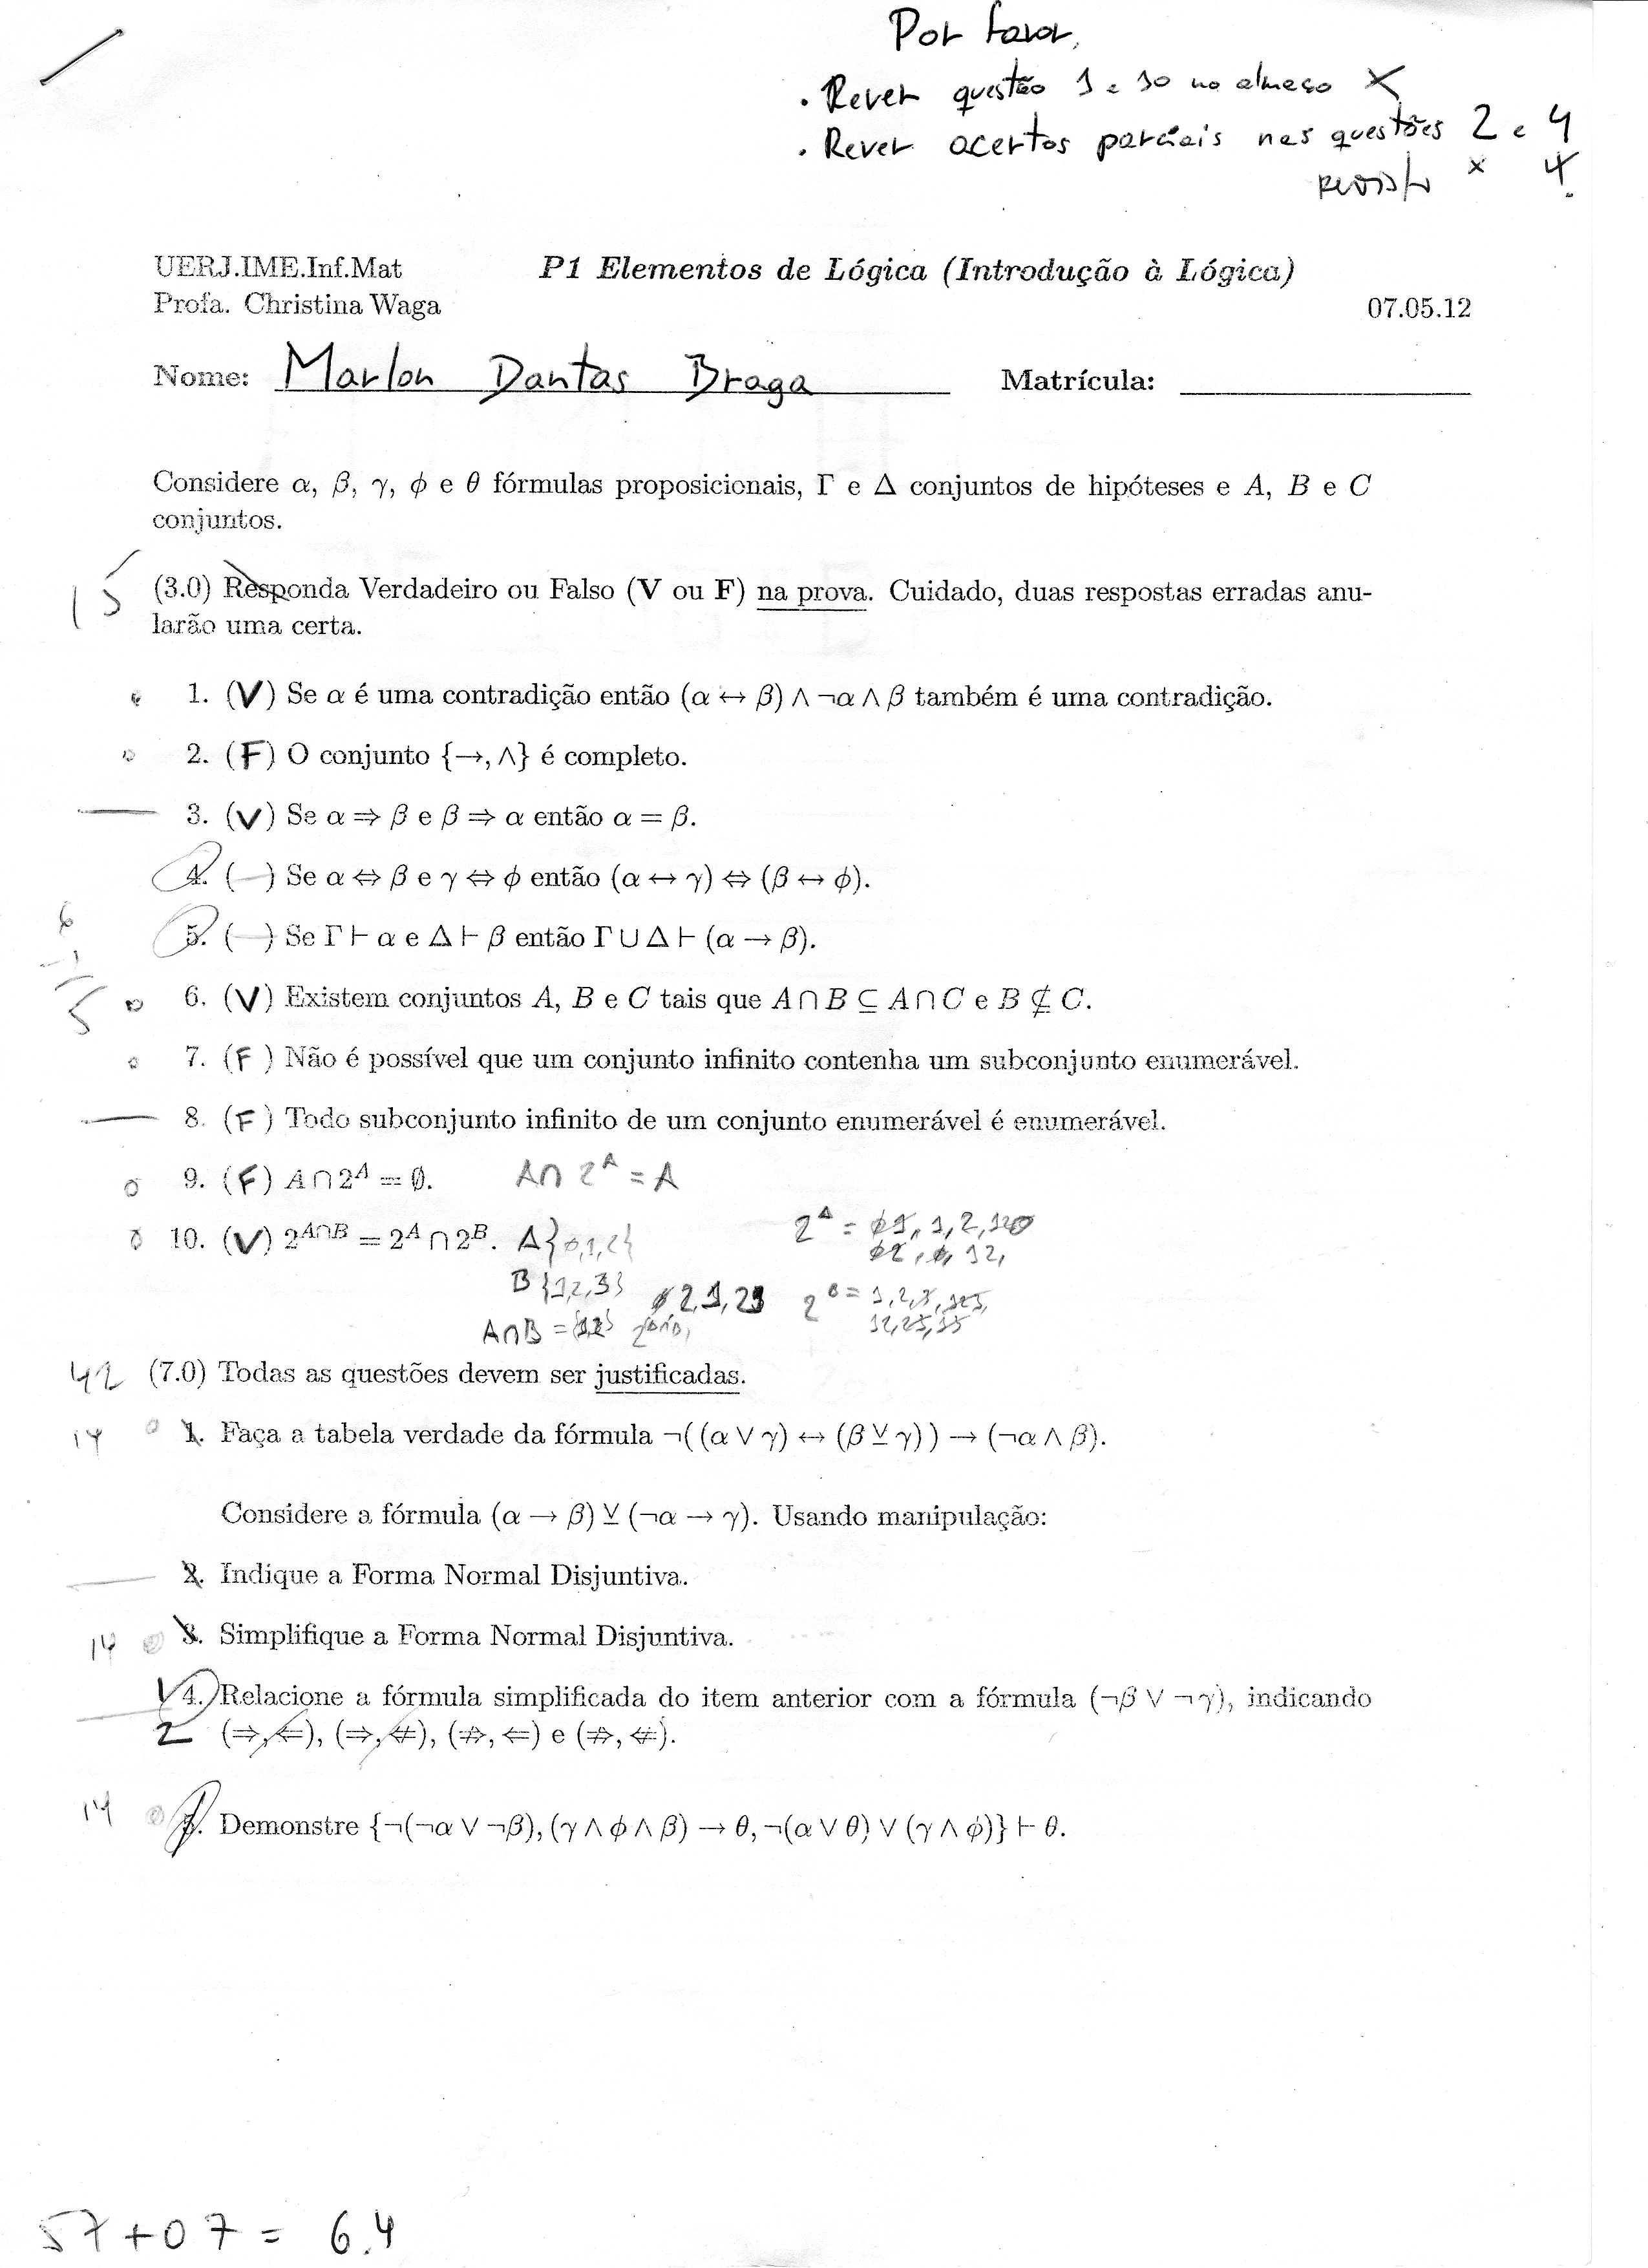 Por favor,
• Rever questão 1 e 10 no almaço X
• Rever acertos parciais nas questões 2 e 4
revisto x 4
UERJ.IME.Inf.Mat P1 Elementos de Lógica (Introdução à Lógica)
Profa. Christina Waga 07.05.12
Nome: Marlon Dantas Braga Matrícula:
Considere α, β, γ, ϕ e θ fórmulas proposicionais, Γ e Δ conjuntos de hipóteses e A, B e C
conjuntos.
15 (3.0) Responda Verdadeiro ou Falso (V ou F) na prova. Cuidado, duas respostas erradas anu-
larão uma certa.
1. (V) Se α é uma contradição então (α ↔ β) ∧ ¬α ∧ β também é uma contradição.
2. (F) O conjunto {→, ∧} é completo.
3. (V) Se α ⇒ β e β ⇒ α então α = β.
4. (—) Se α ⇔ β e γ ⇔ ϕ então (α ↔ γ) ⇔ (β ↔ ϕ).
6
5. (—) Se Γ ⊢ α e Δ ⊢ β então Γ ∪ Δ ⊢ (α → β).
-1
5 6. (V) Existem conjuntos A, B e C tais que A ∩ B ⊆ A ∩ C e B ⊈ C.
7. (F) Não é possível que um conjunto infinito contenha um subconjunto enumerável.
8. (F) Todo subconjunto infinito de um conjunto enumerável é enumerável.
9. (F) A ∩ 2^A = ∅. A ∩ 2^A = A
10. (V) 2^{A∩B} = 2^A ∩ 2^B. A{0,1,2}
B{1,2,3}
A∩B =
42 (7.0) Todas as questões devem ser justificadas.
14 1. Faça a tabela verdade da fórmula ¬((α ∨ γ) ↔ (β ⊻ γ)) → (¬α ∧ β).
Considere a fórmula (α → β) ⊻ (¬α → γ). Usando manipulação:
2. Indique a Forma Normal Disjuntiva.
14 3. Simplifique a Forma Normal Disjuntiva.
4. Relacione a fórmula simplificada do item anterior com a fórmula (¬β ∨ ¬γ), indicando
2 (⇒, ⇐), (⇒, ⇍), (⇏, ⇐) e (⇏, ⇍).
14 5. Demonstre {¬(¬α ∨ ¬β), (γ ∧ ϕ ∧ β) → θ, ¬(α ∨ θ) ∨ (γ ∧ ϕ)} ⊢ θ.
57 + 07 = 6.4